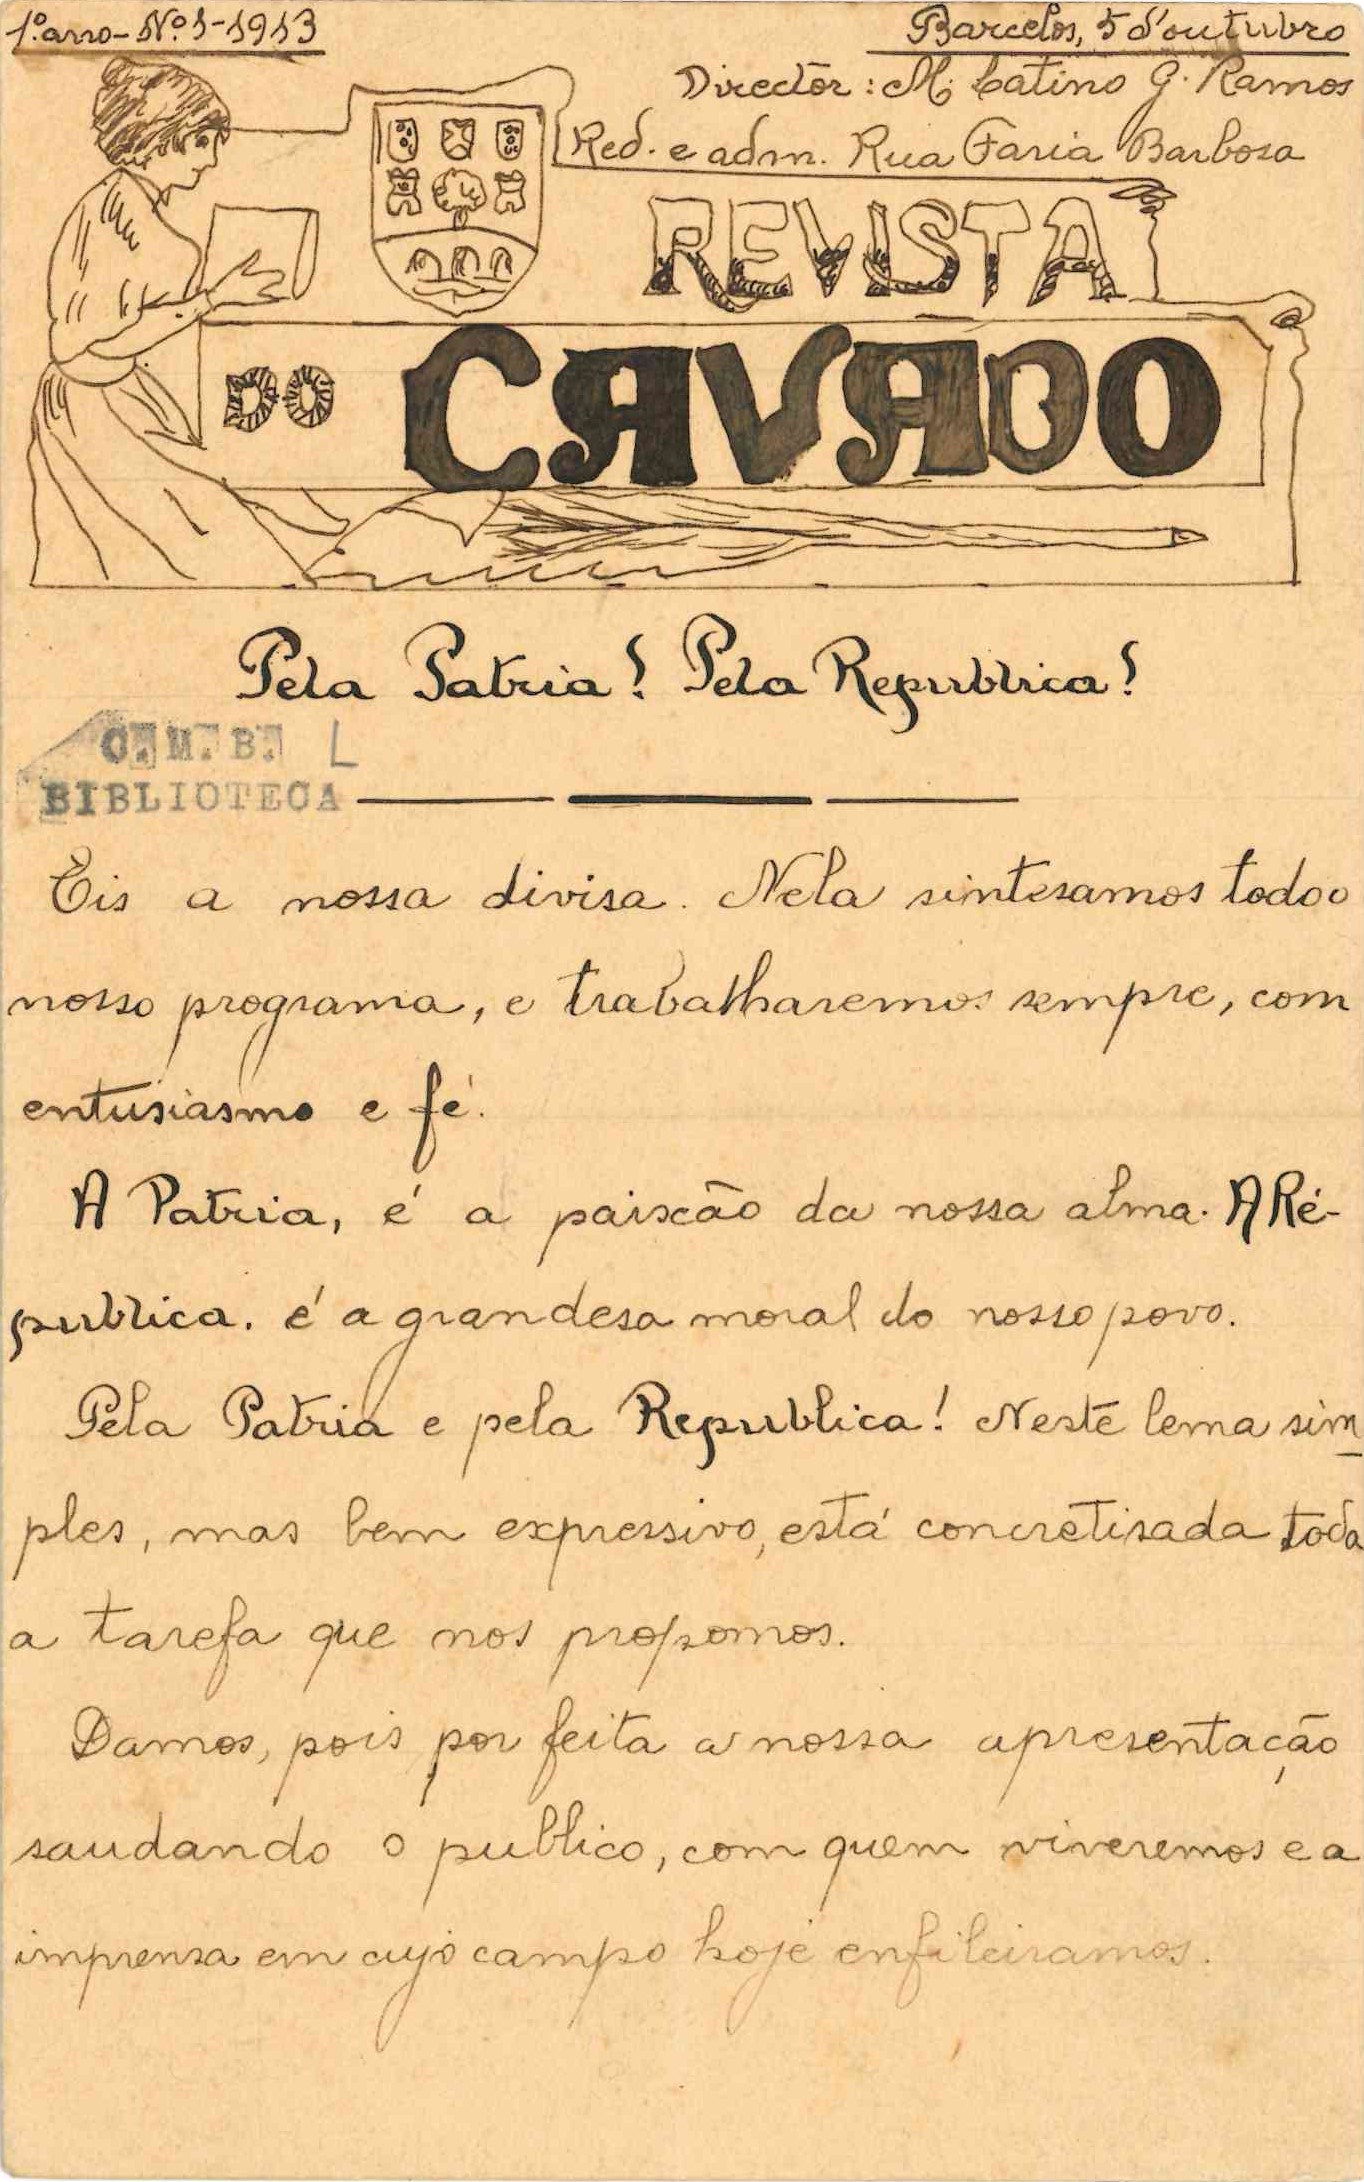 1.º anno - N.º 1 - 1913
Barcelos, 5 d'outubro
Directôr: M. Catino G. Ramos
Red. e adm. Rua Faria Barbosa
REVISTA
DO CAVADO
Pela Patria! Pela Republica!
C. M. B. L
BIBLIOTECA
Eis a nossa divisa. Nela sintesamos todo o
nosso programa, e trabalharemos sempre, com
entusiasmo e fé.
A Patria, é a paixão da nossa alma. A Ré-
publica. é a grandesa moral do nosso povo.
Pela Patria e pela Republica! Neste lema sim
ples, mas bem expressivo, está concretisada toda
a tarefa que nos propomos.
Damos, pois por feita a nossa apresentação
saudando o publico, com quem viveremos e a
imprensa em cujo campo hoje enfileiramos.